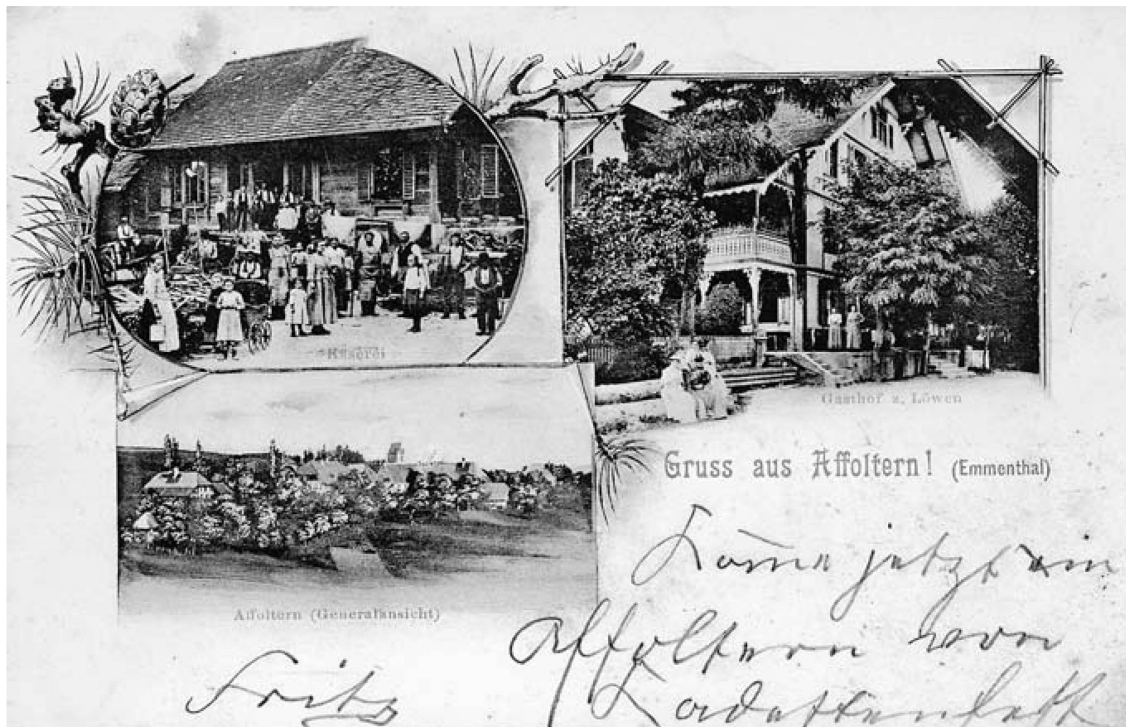 Käserei
Gasthof z. Löwen
Gruss aus Affoltern! (Emmenthal)
Affoltern (Generalansicht)
jetzt
Affoltern von
Fritz